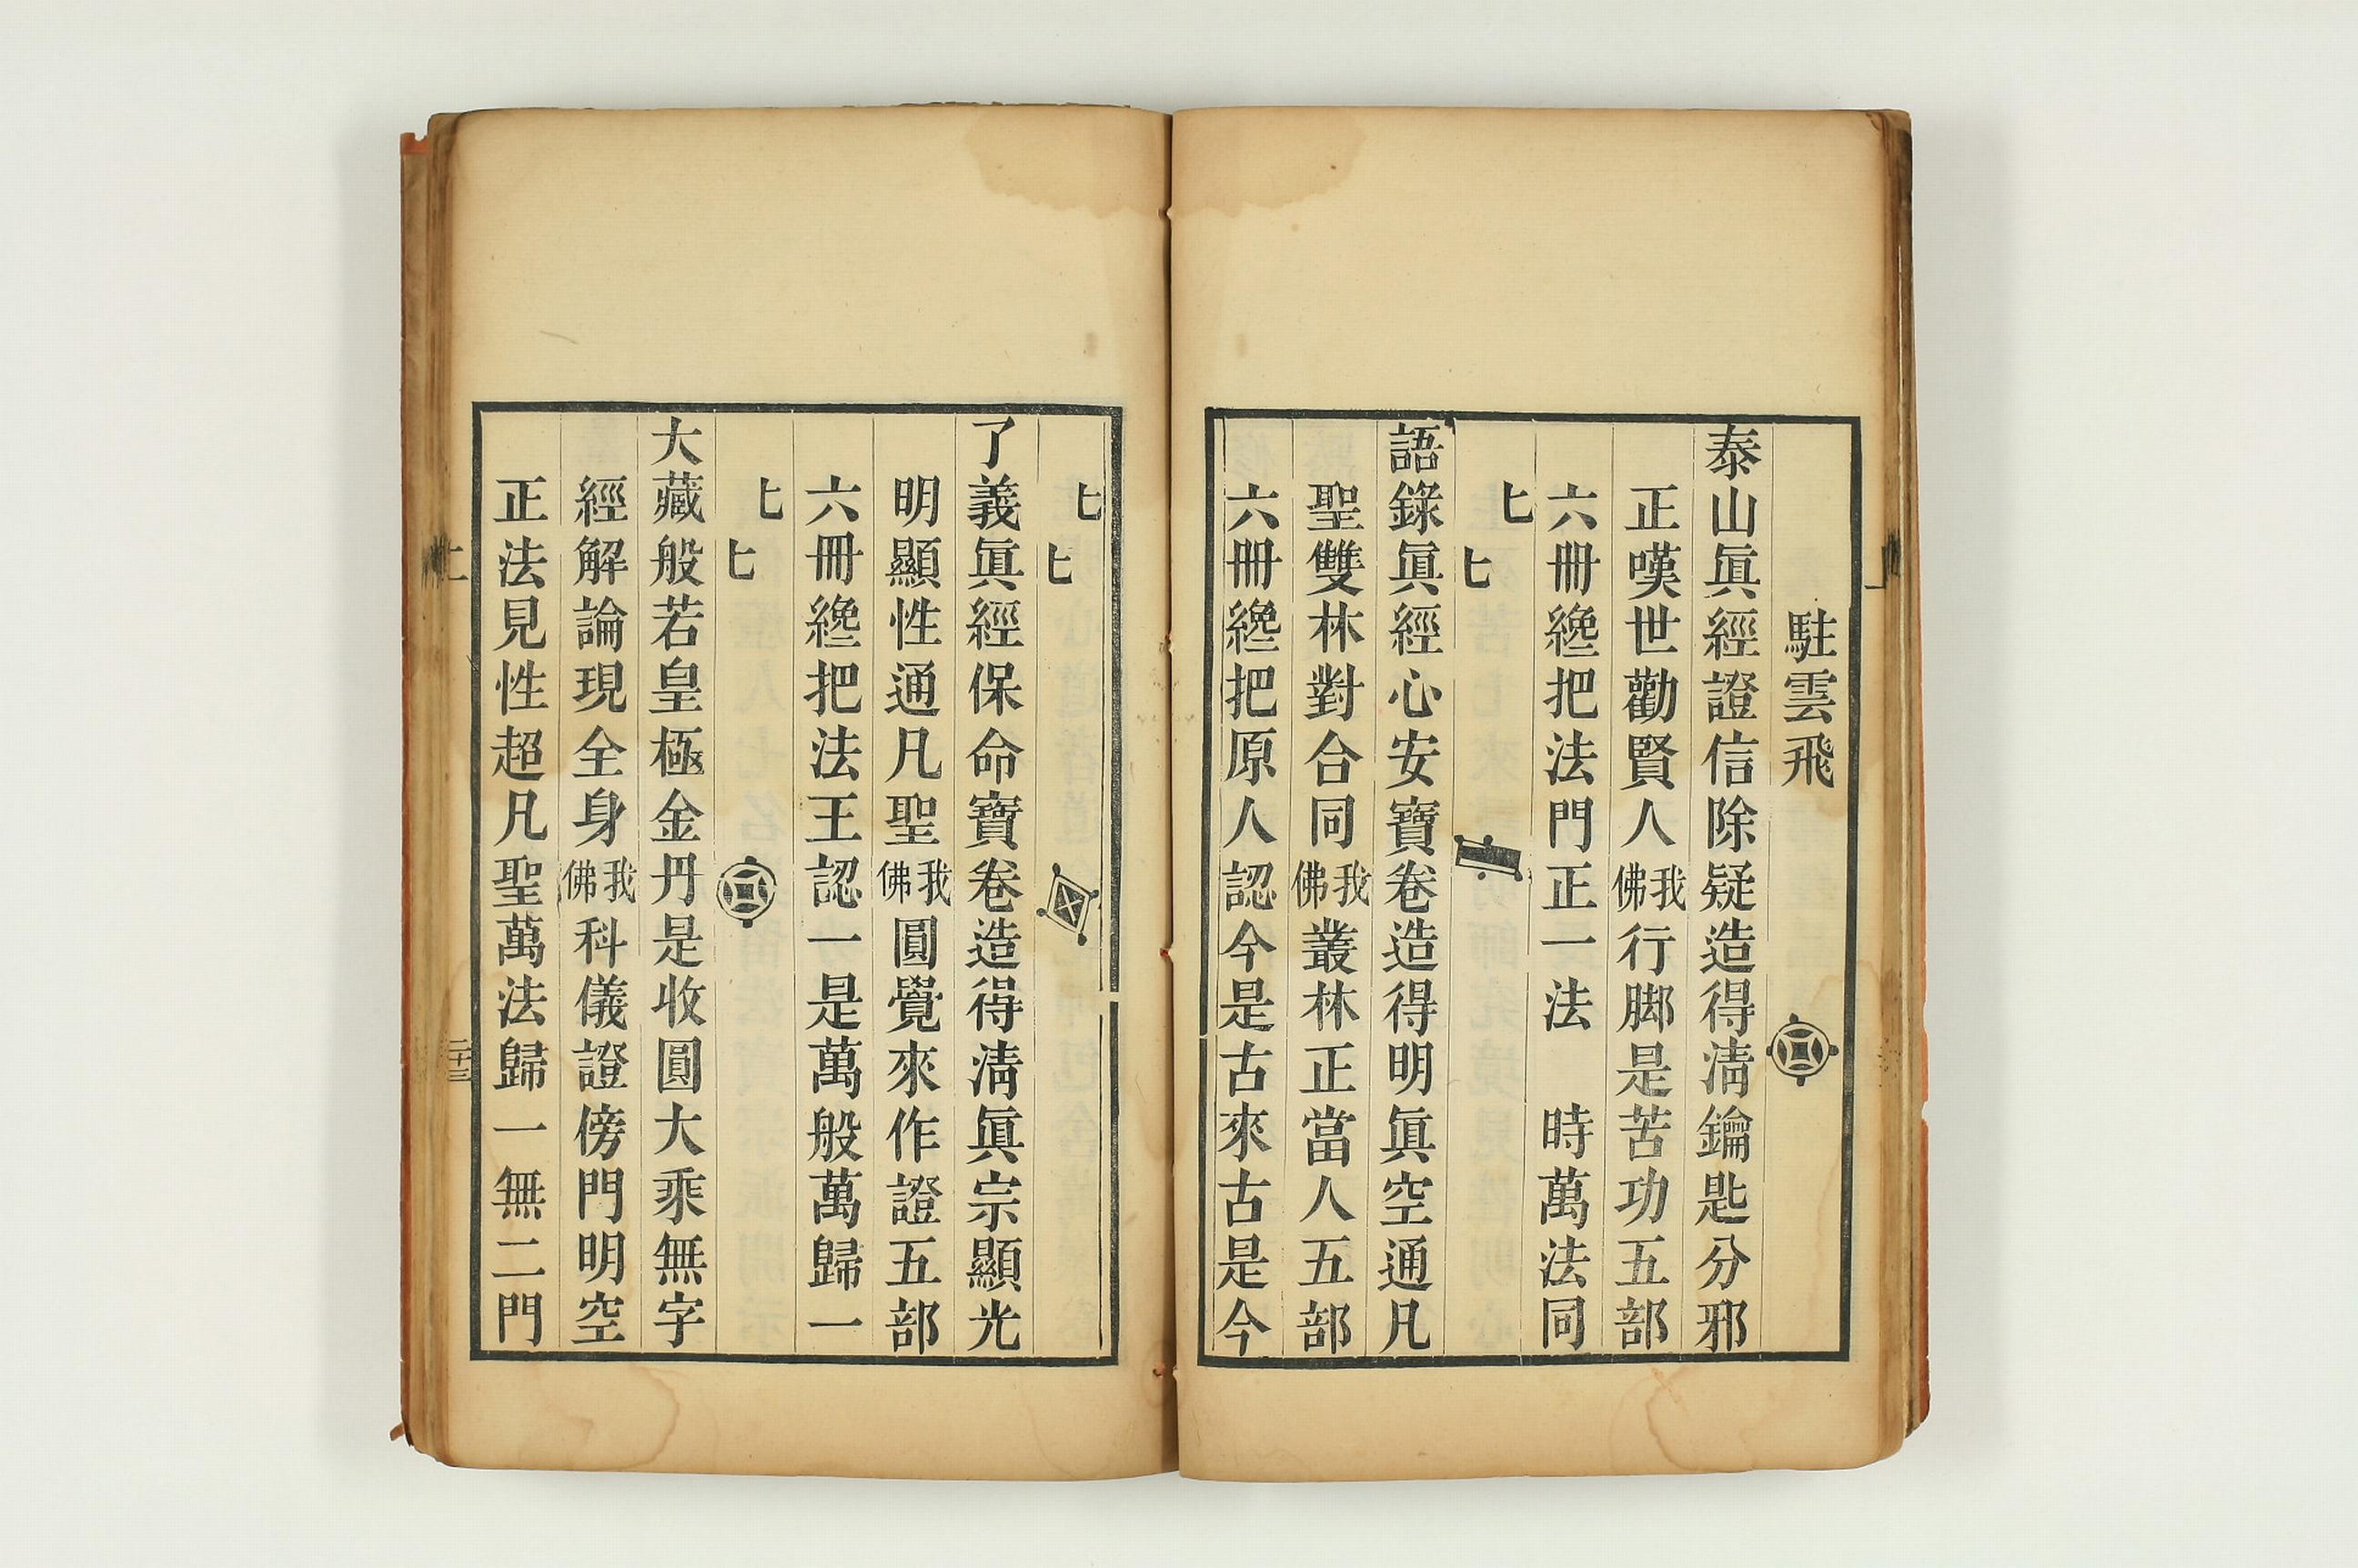 駐雲飛
泰山眞經證信除疑造得淸鑰匙分邪
正嘆世勸賢人我佛行脚是苦功五部
六冊纔把法門正一法 時萬法同
匕匕
語錄眞經心安寶卷造得明眞空通凡
聖雙林對合同我佛叢林正當人五部
六冊纔把原人認今是古來古是今
匕匕
了義眞經保命寶卷造得淸眞宗顯光
明顯性通凡聖我佛圓覺來作證五部
六冊纔把法王認一是萬般萬歸一
匕匕
大藏般若皇極金丹是收圓大乘無字
經解論現全身我佛科儀證傍門明空
正法見性超凡聖萬法歸一無二門
二十三